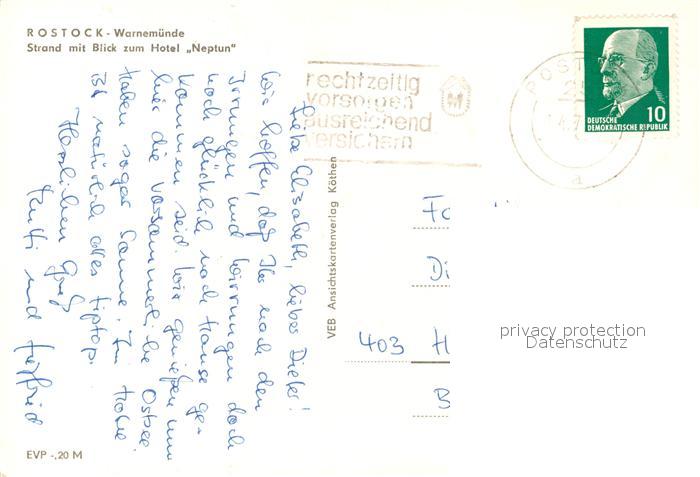 ROSTOCK - Warnemünde
Strand mit Blick zum Hotel „Neptun"
rechtzeitig
vorsorgen
ausreichend
versichern
M
POST
DEUTSCHE
DEMOKRATISCHE REPUBLIK
10
a
Liebe Elisabeth, lieber Dieter!
Wir hoffen, daß Ihr nach den
Irrungen und Wirrungen doch
noch glücklich nach Hause ge-
kommen seid. Wir genießen nun
hier die vorsommerliche Ostsee.
Haben sogar Sonne! Im Hotel
ist natürlich alles tiptop.
Herzlichen Gruß
und
VEB Ansichtskartenverlag Köthen
Di
403 H
B
privacy protection
Datenschutz
EVP -,20 M